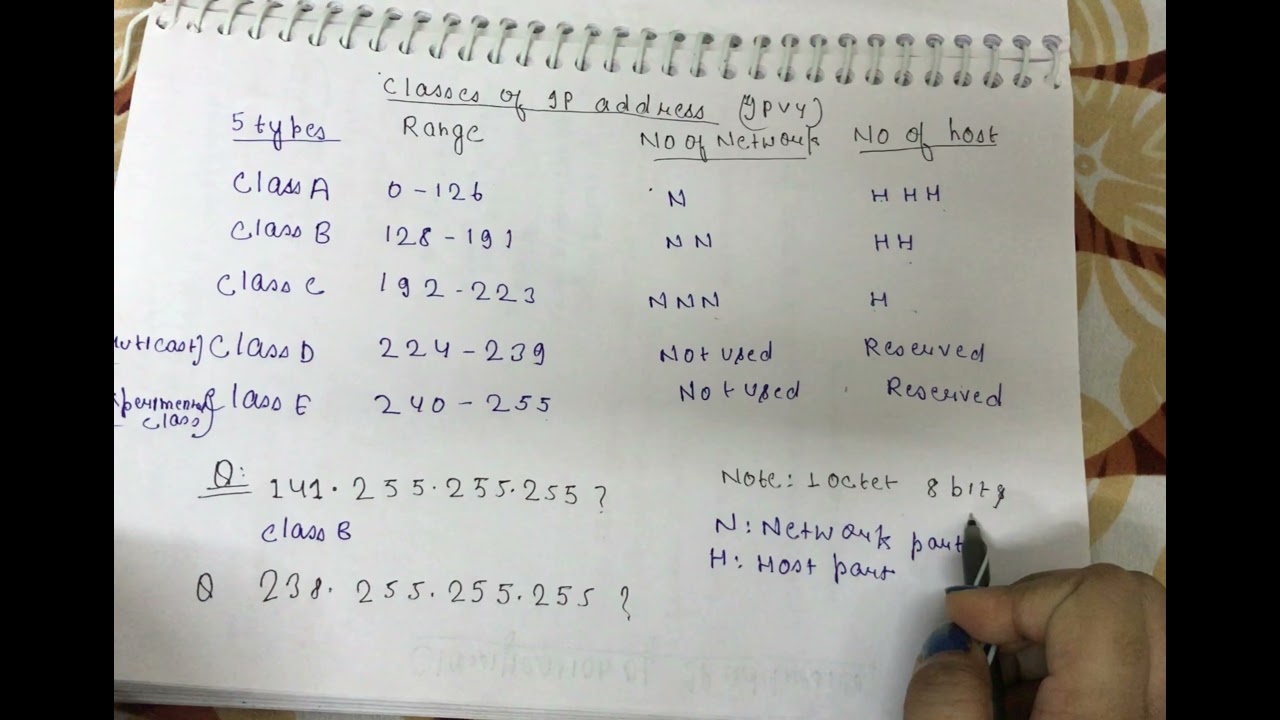 Classes of IP address (IPV4)
5 types Range No of Network No of host
Class A 0 - 126 N H H H
Class B 128 - 191 N N H H
Class C 192 - 223 N N N H
Class D 224 - 239 Not used Reserved
Class E 240 - 255 Not used Reserved
class
Q: 141.255.255.255 ?
Class B
Q 238.255.255.255 ?
Note: 1 octet 8 bits
N: Network part
H: Host part